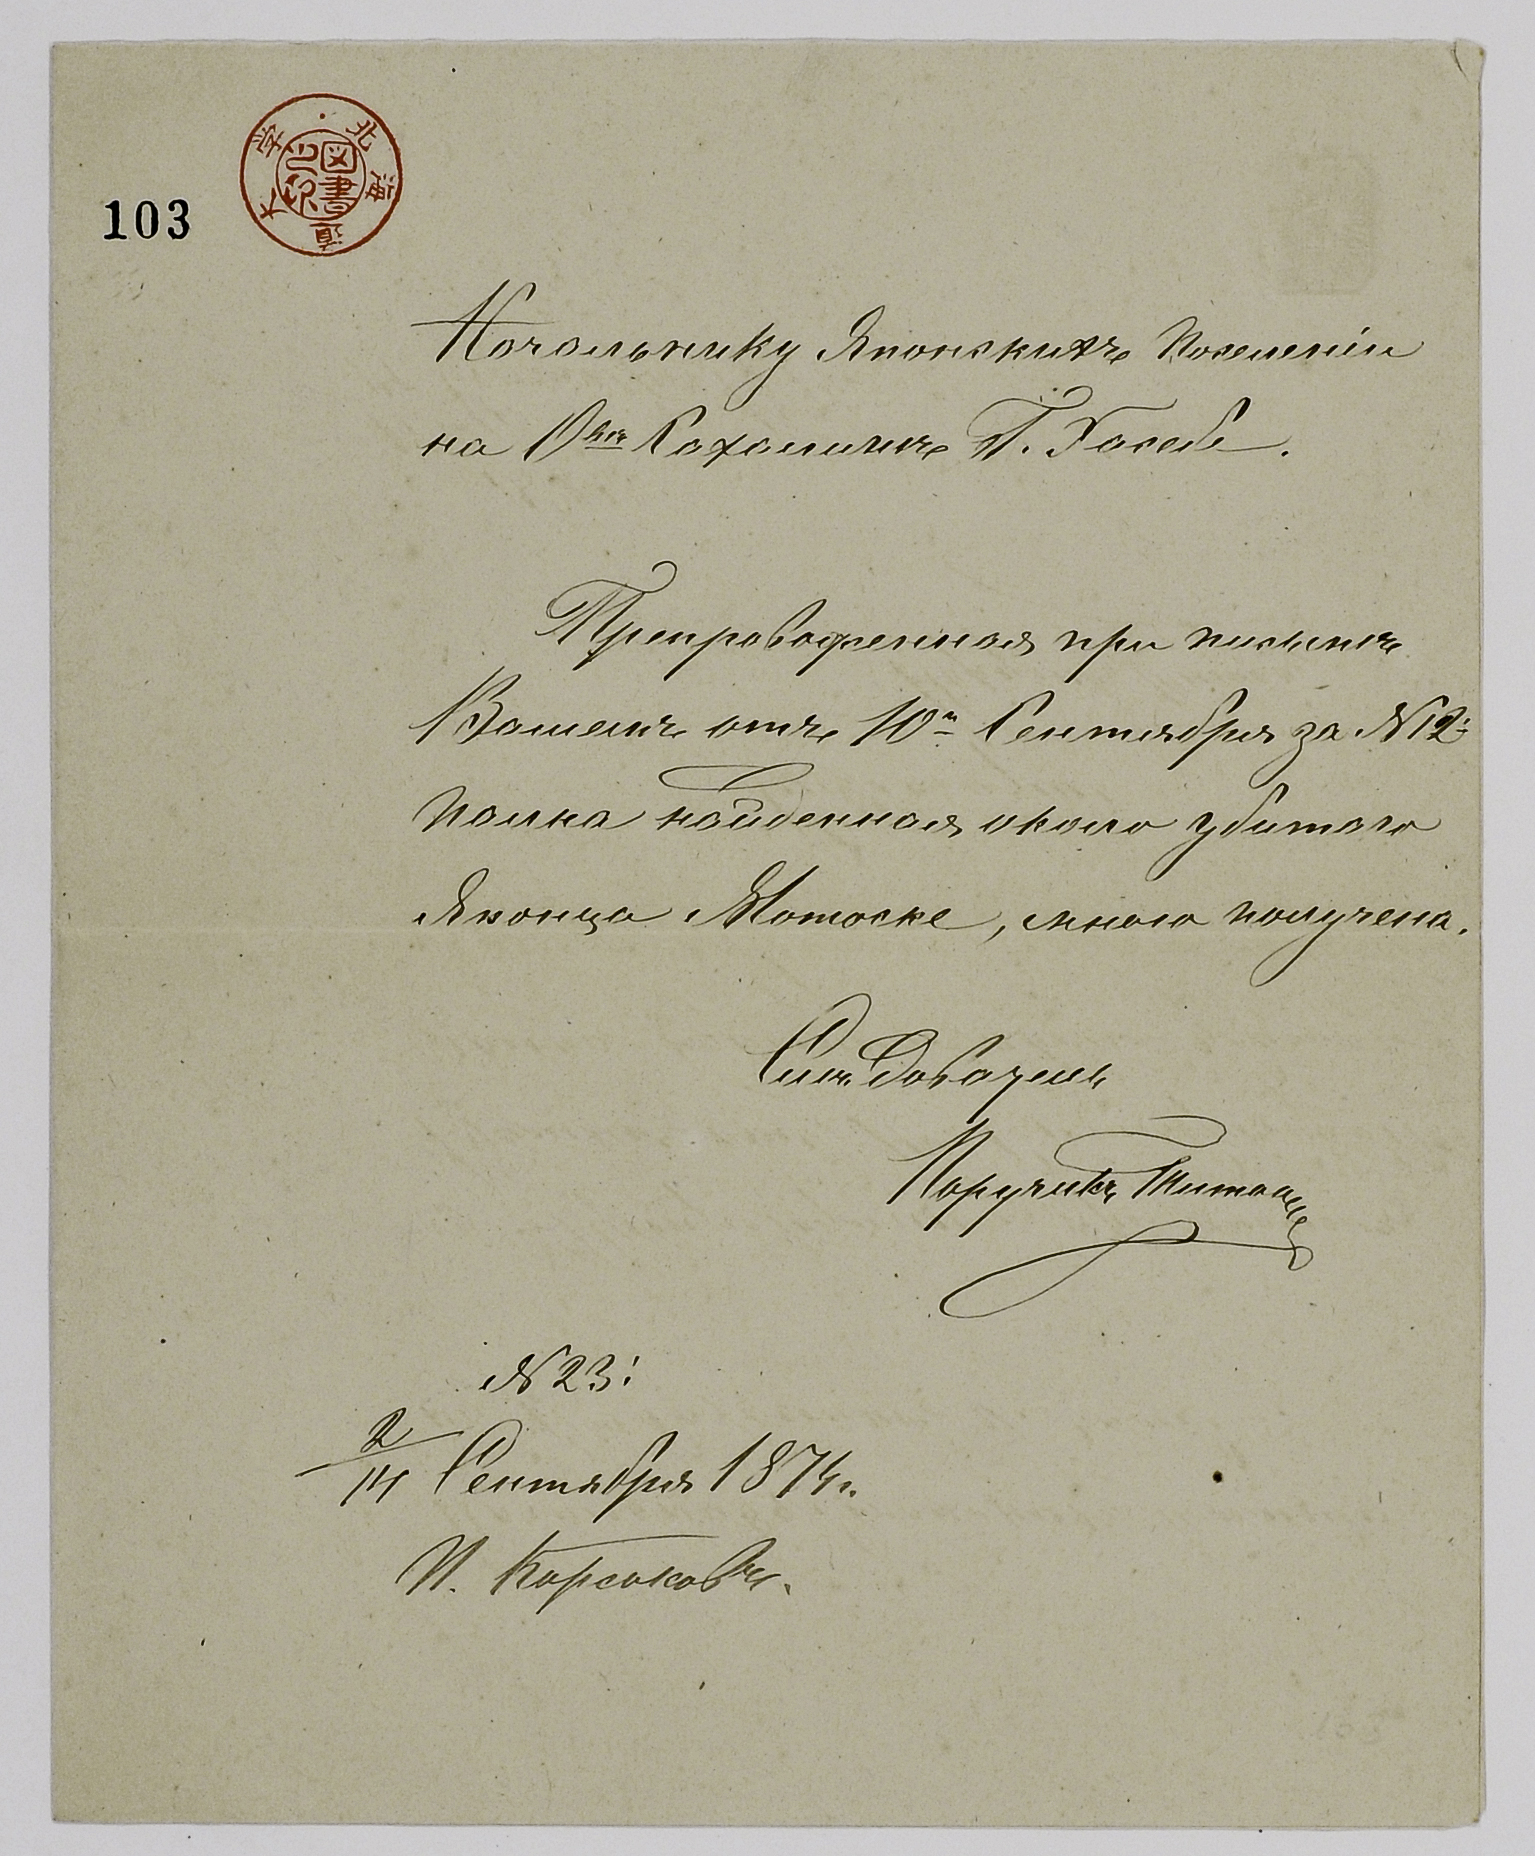 103
北海道大学
図書之印
Начальнику Японскихъ Поселеній
на О-вѣ Сахалинѣ Г. Хасебе.
Препровожденная при письмѣ
Вашемъ отъ 10го Сентября за № 12:
палка найденная около убитаго
Японца Мотоске, мною получена.
Слѣдователь
Поручикъ
№ 23:
2/14 Сентября 1874 г.
П. Корсаковъ.